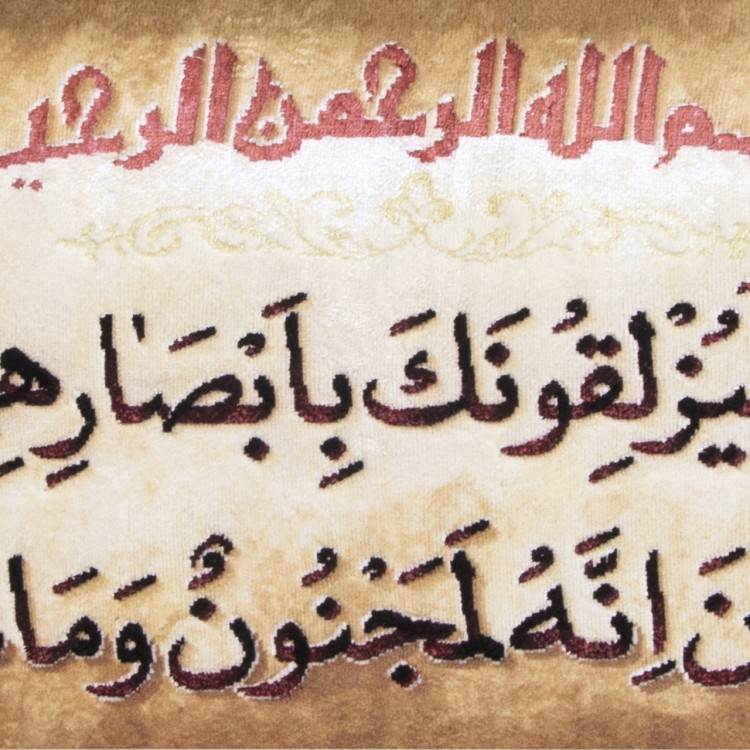 سم الله الرحمن الرحي
يُزْلِقُونَكَ بِاَبْصَارِهِ
نَ اِنَّهُ لَمَجْنُونٌ وَمَا